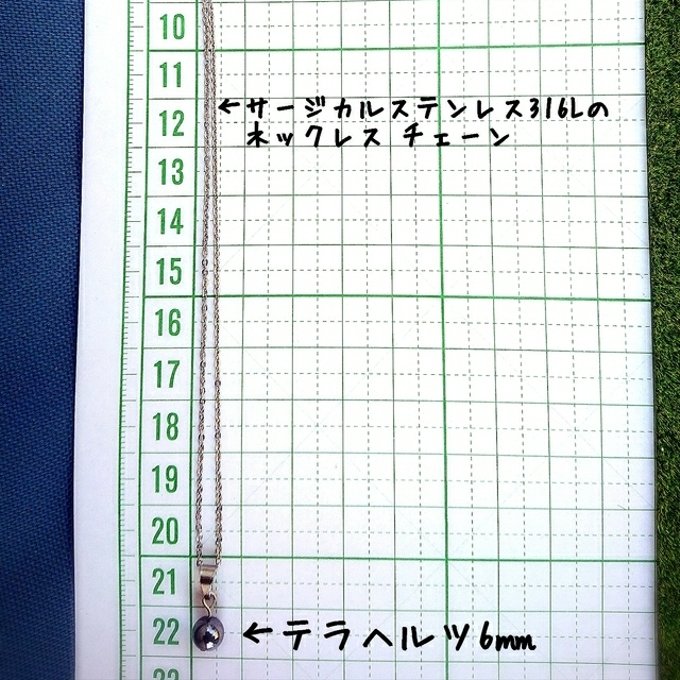 10
11
←サージカルステンレス316Lの
12
ネックレス チェーン
13
14
15
16
17
18
19
20
21
22
←テラヘルツ6mm